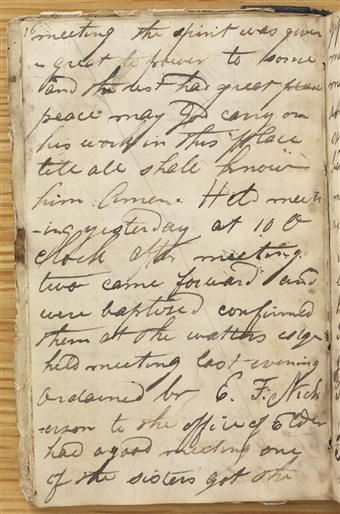 16
meeting the spirit was given
in great to power to some
and the rest had great peace
peace may God carry on
his work in this place
till all shall know
him Amen. Held meet-
-ing yesterday at 10 O
clock after meeting
two came forward and
were baptised confirmed
them at the watters edge
held meeting last evening
ordained br E. F. Nick
-erson to the office of Elder
had a good meeting one
of the sisters got the